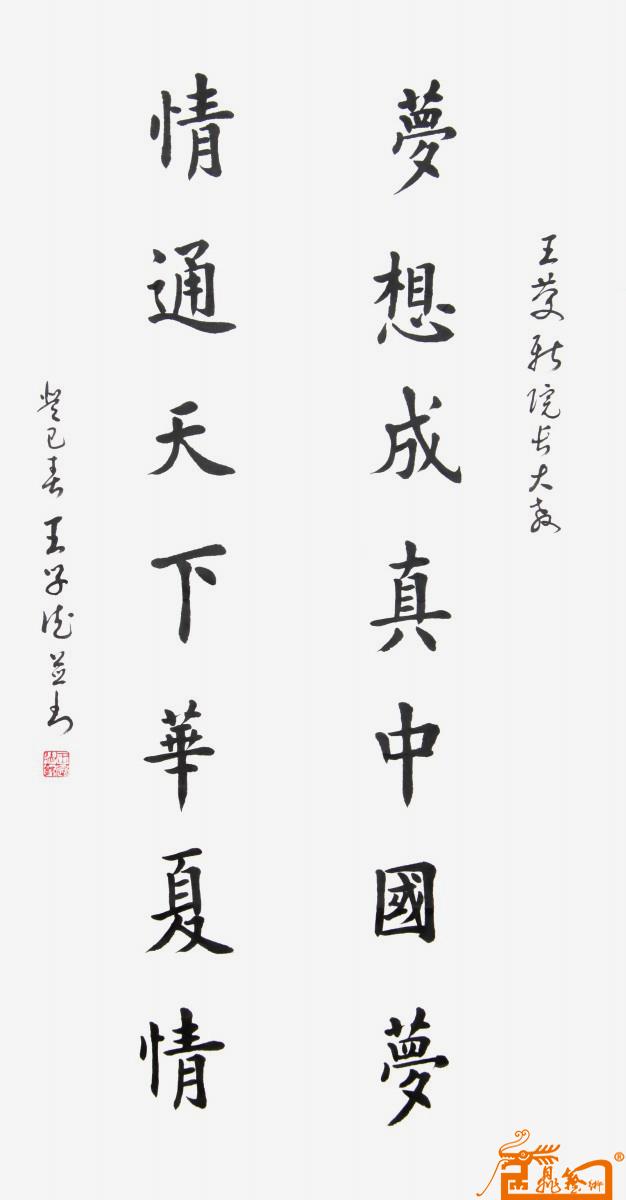 王茂新院长大教
夢想成真中國夢
情通天下華夏情
癸巳春王学德並书